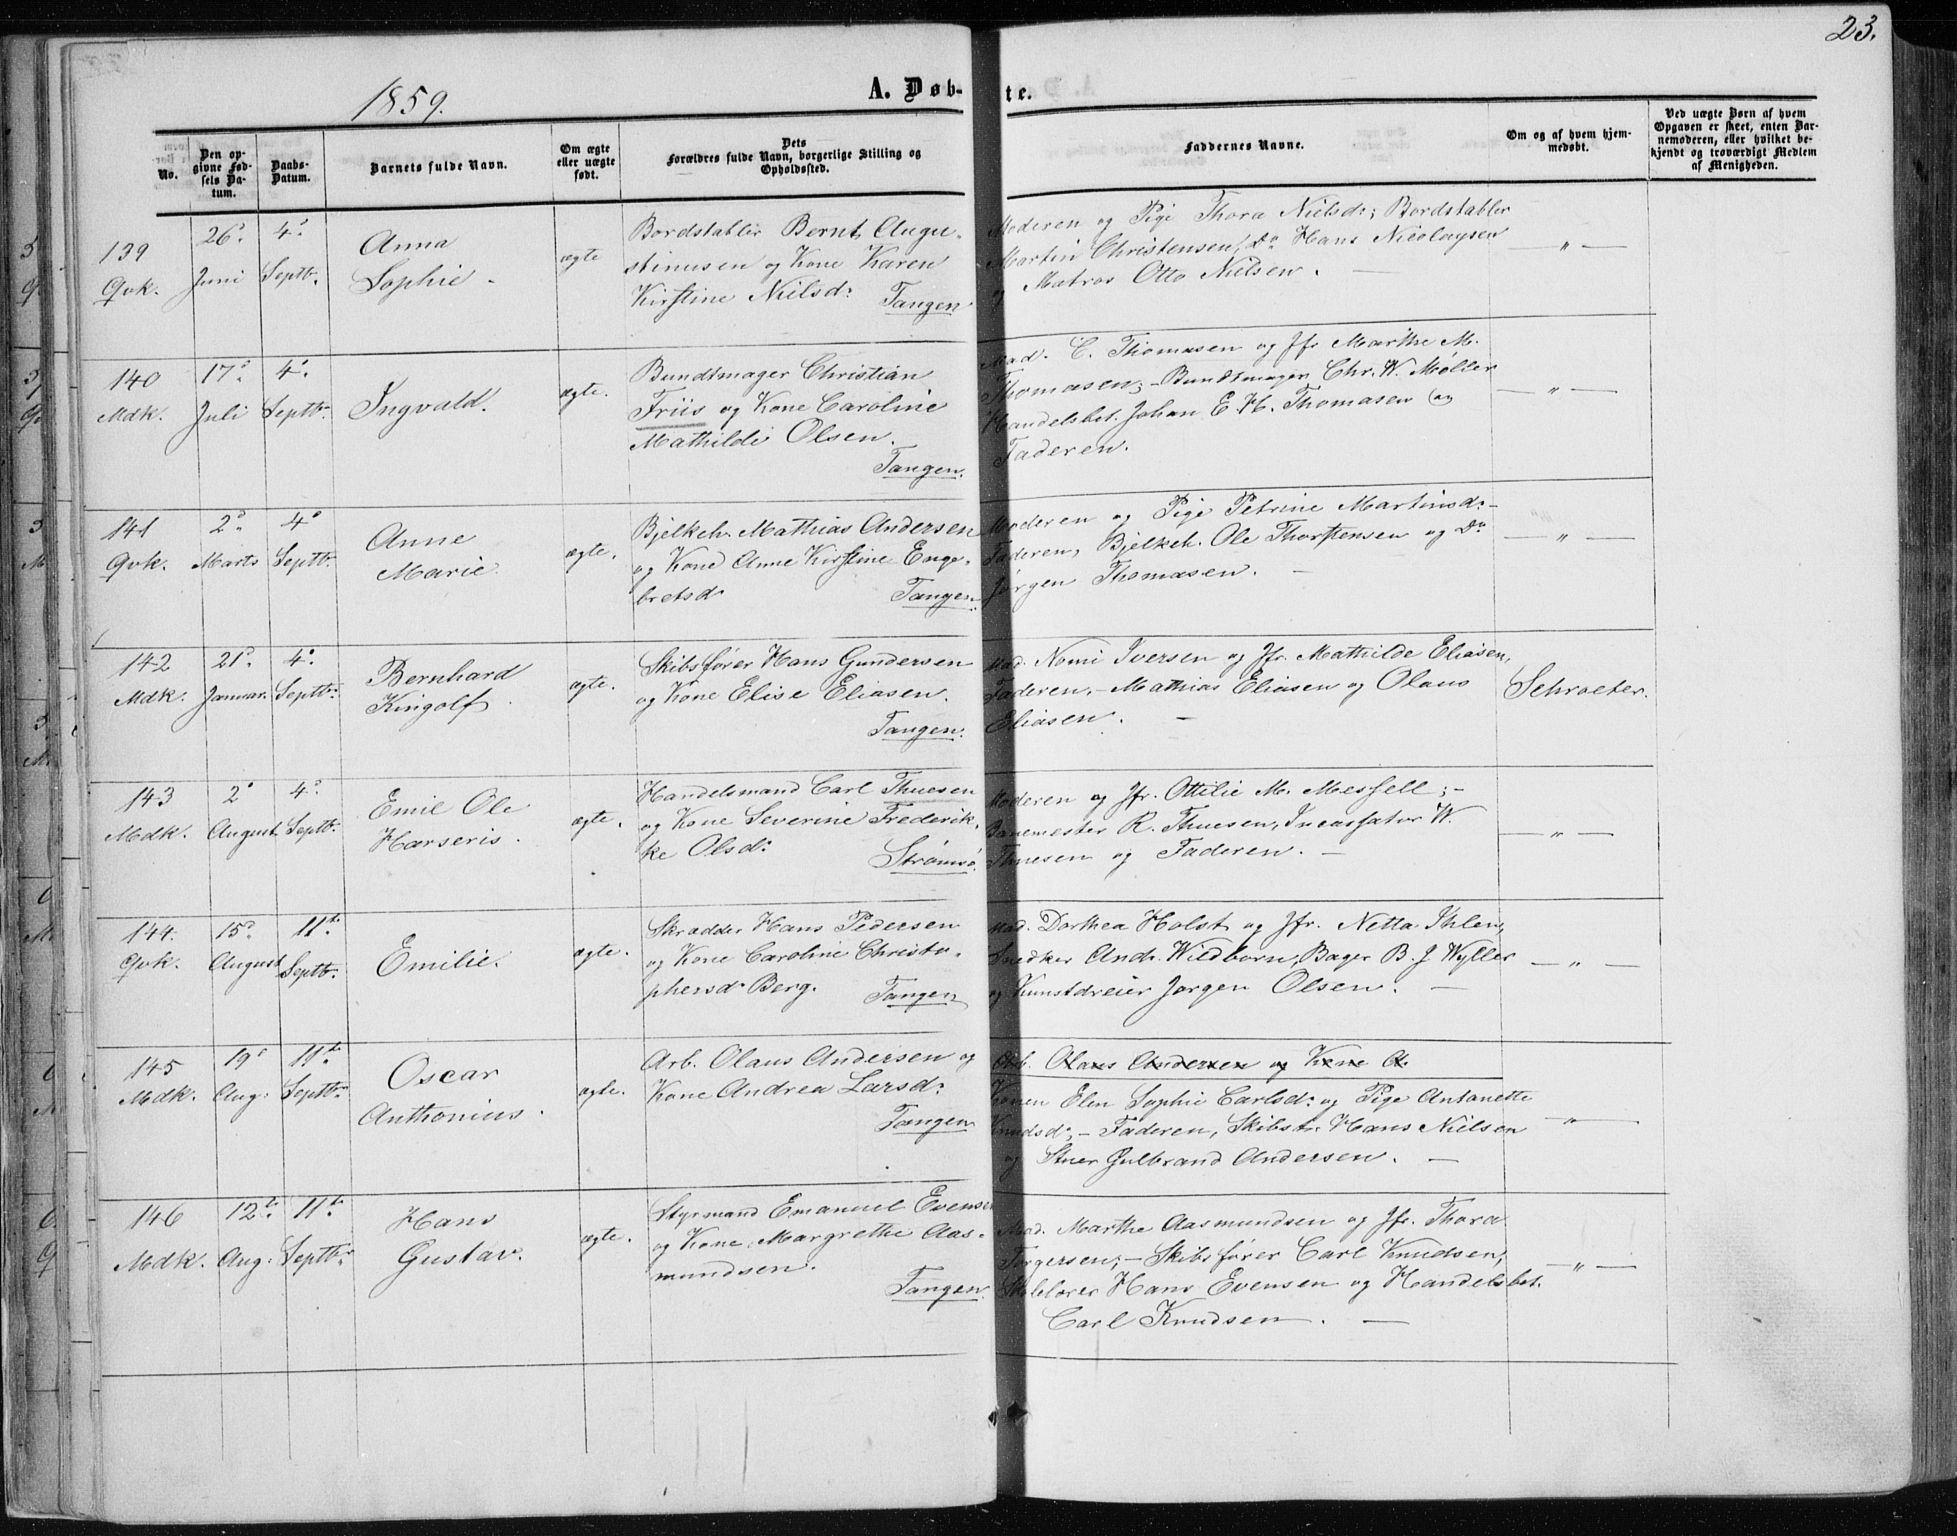 23.
1859.
A. Døb-
te.
No.
Den op-
givne Fød-
sels Da-
tum.
Daabs-
Datum.
Barnets fulde Navn.
Om ægte
eller uægte
født.
Dets
Forældres fulde Navn, borgerlige Stilling og
Opholdssted.
Faddernes Navne.
Om og af hvem hjem-
medøbt.
Ved uægte Børn af hvem
Opgaven er skeet, enten Bar-
nemoderen, eller hvilket be-
kjendt og troværdigt Medlem
af Menigheden.
139
Qvk.
26d
Juni
4d
Septbr.
Anna
Sophie
ægte
Bordstabler Bernt Augu-
stinusen og Kone Karen
Kirstine Nielsd:
Tangen
Moderen og Pige Thora Nielsd:; Bordstabler
Martin Christensen, Do Hans Nicolaysen
og Matros Otto Nielsen. —
— " —
140
Mdk.
17d
Juli
4d
Septbr.
Ingvald.
ægte.
Bundtmager Christian
Friis og Kone Caroline
Mathilde Olsen.
Tangen.
Mad. C. Thomasen og Jfr Marthe M.
Thomasen; – Bundtmager Chr. W. Møller
Handelsbet. Johan E. H. Thomasen og
Faderen.
— " —
141
Qvk.
2d
Marts
4d
Septbr.
Anne
Marie.
ægte.
Bjelkeh. Mathias Andersen
og Kone Anne Kirstine Enge-
bretsd:
Tangen.
Moderen og Pige Petrine Martinsd: –
Faderen, Bjelkeh. Ole Thorstensen og Do
Jørgen Thomasen. —
— " —
142
Mdk.
21d
Januar.
4d
Septbr.
Bernhard
Kingolf.
ægte.
Skibsfører Hans Gundersen
og Kone Elise Eliasen.
Tangen.
Mad. Nomi Iversen og Jfr. Mathilde Eliasen,
Faderen, – Mathias Eliasen og Olaus
Eliasen. —
Schroeter.
143
Mdk.
2d
August
4d
Septbr.
Emil Ole
Harseris.
ægte.
Handelsmand Carl Thuesen
og Kone Severine Frederik-
ke Olsd:
Strømsø.
Moderen og Jfr. Ottilie M. Messell; –
Banemester R. Thuesen, Incassator W.
Thuesen og Faderen. —
— " —
144.
Qvk.
15d
August
11te
Septbr.
Emilie.
ægte.
Skrædder Hans Pedersen
og Kone Caroline Christo-
phersd: Berg.
Tangen
Mad. Dorthea Holst og Jfr. Netta Ihlen,
Snedker Andr. Wildborn, Bager B. J Wyller
og Kunstdreier Jørgen Olsen. —
— " —
145
Mdk.
19d
Aug:
11te
Septbr.
Oscar
Anthonius.
ægte.
Arb. Olaus Andersen og
Kone Andrea Larsd:
Tangen
Arb. Olaus Andersen og Kone A.
Konen Elen Sophie Carlsd: og Pige Antonette
Knudsd:, – Faderen, Skibst. Hans Nielsen
og Stuer Gulbrand Andersen. —
— " —
146
Mdk.
12te
Aug:
11te
Septbr.
Hans
Gustav.
ægte.
Styrmand Emanuel Evensen
og Kone Margrethe Aas-
mundsen.
Tangen.
Mad. Marthe Aasmundsen og Jfr. Thora
Torgersen; – Skibsfører Carl Knudsen,
Skolelærer Hans Evensen og Handelsbet.
Carl Knudsen. —
— " —